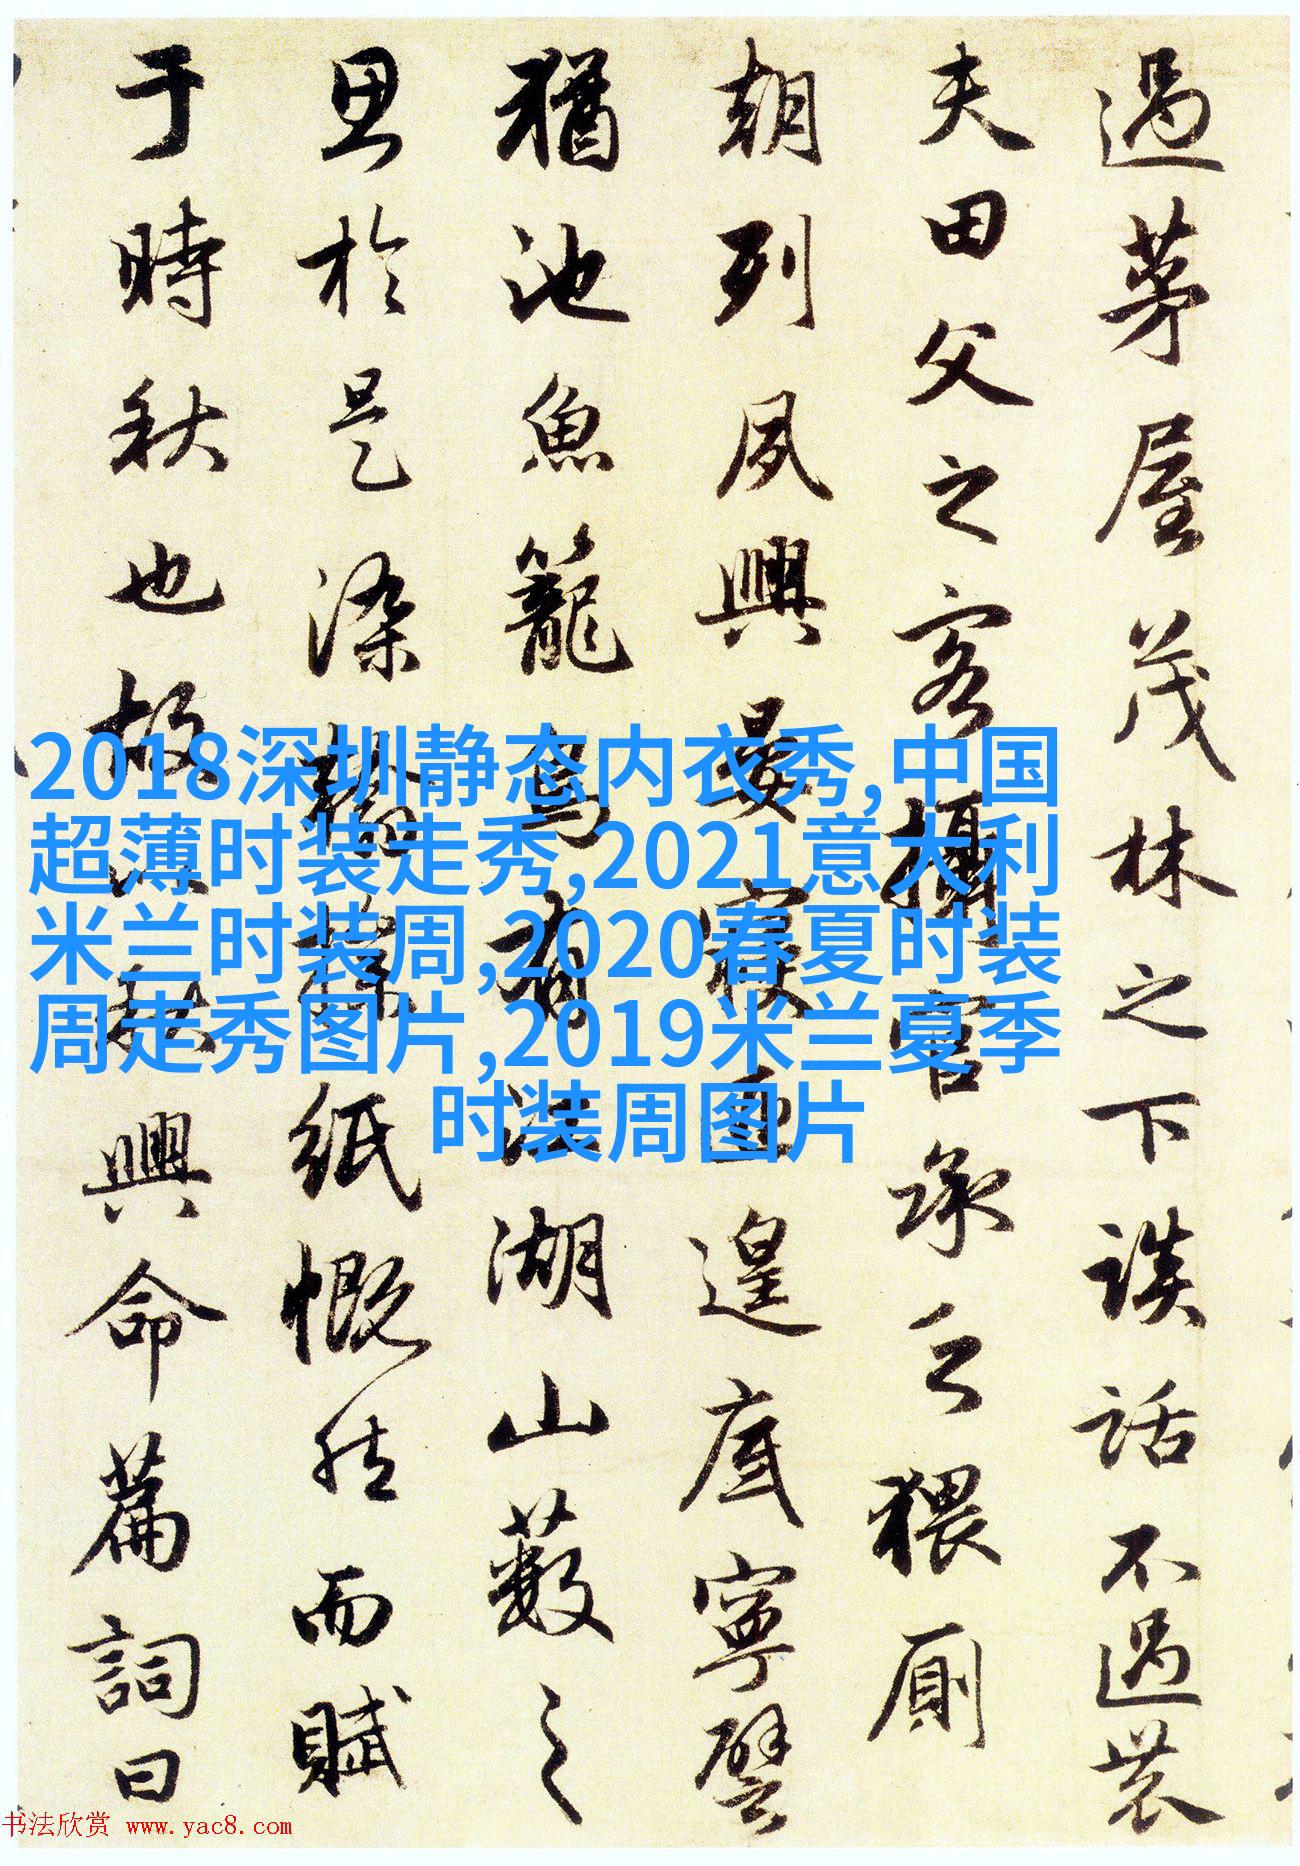 過茅屋茂林之下談話不過農
夫田父之客攝官承乏猥廁
朝列夙興晏寢匪遑底寧譬
猶池魚籠鳥有江湖山藪之
思於是染翰操紙慨然而賦
于時秋也故以秋興命篇詞曰
2018深圳静态内衣秀,中国
超薄时装走秀,2021意大利
米兰时装周,2020春夏时装
周走秀图片,2019米兰夏季
时装周图片
书法欣赏 www.yac8.com